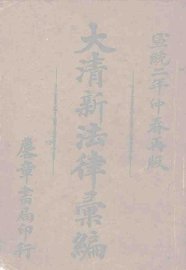 宣統二年仲春再版
大清新法律彙編
麐章書局印行